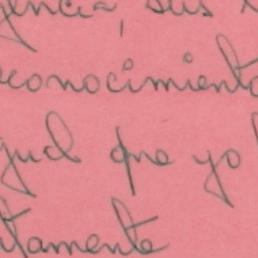 gencia, sus
conocimiento
gual que yo
tamente